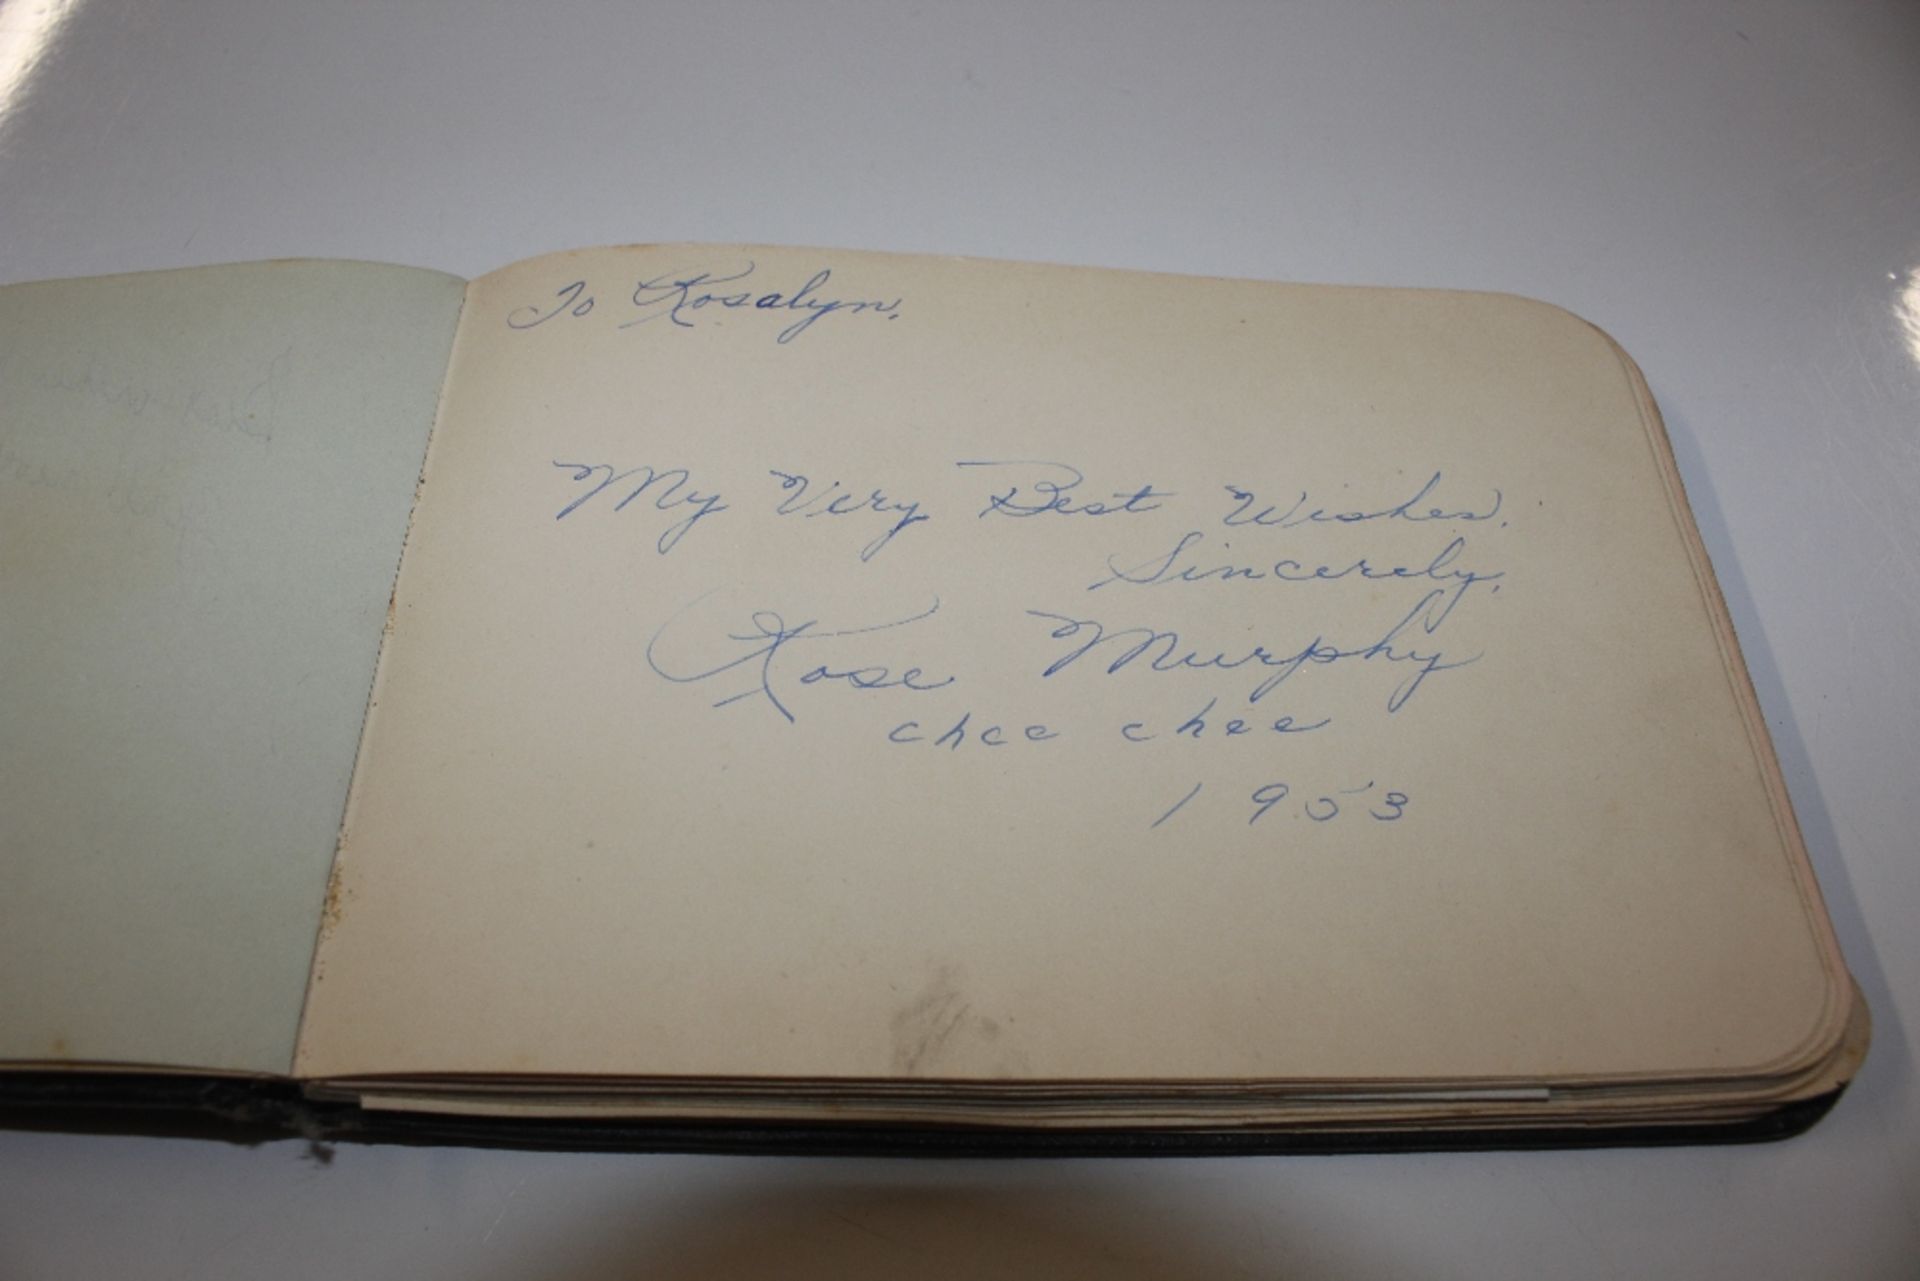 To Rosalyn.
My Very Best Wishes.
Sincerely,
Rose Murphy
chee chee
1953